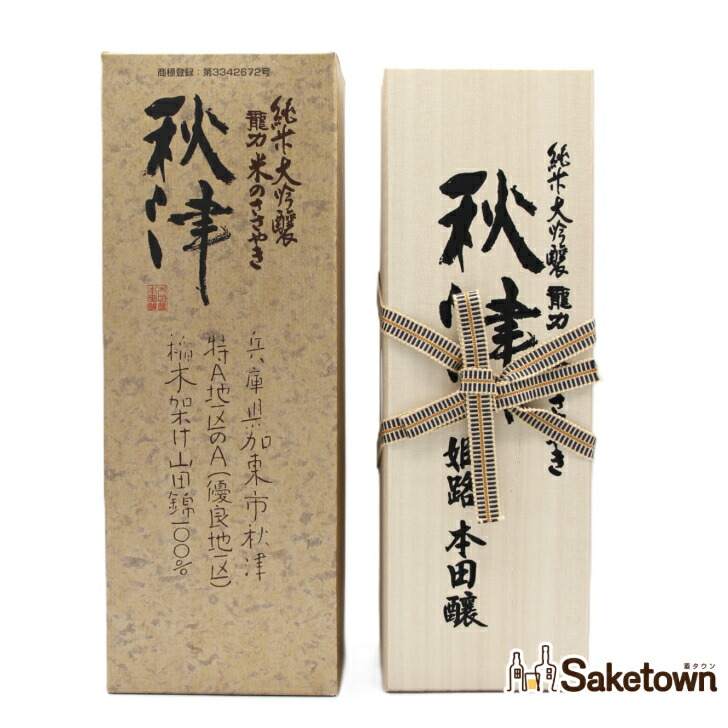 商標登録：第3342672号
純米大吟醸
龍力 米のささやき
秋津
兵庫県加東市秋津
特A地区のA(優良地区)
稲木架け山田錦一〇〇%
純米大吟醸 龍力
さき
秋津
姫路 本田醸
酒タウン
Saketown